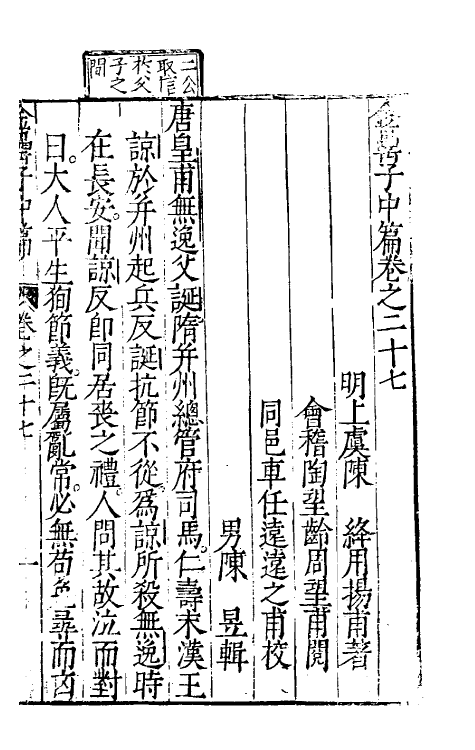 金罍子中篇卷之二十七
明上虞陳　絳用揚甫著
會稽陶望齡周望甫閱
同邑車任遠遠之甫校
男陳　昱輯
二公
取信
於父
子之
間
唐皇甫無逸父誕隋并州總管府司馬仁壽末漢王
諒於并州起兵反誕抗節不從爲諒所殺無逸時
在長安聞諒反卽同居喪之禮人問其故泣而對
曰大人平生狥節義旣屬亂常必無苟免尋而凶
金罍子中篇
卷之二十七
一